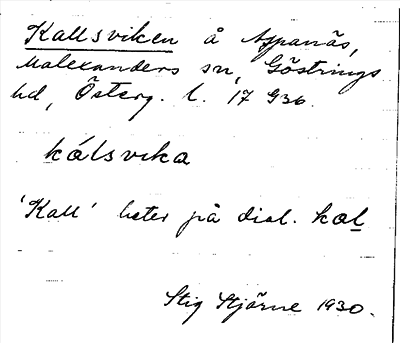 Kallsviken å Aspanäs,
Malexanders sn, Göstrings
hd, Österg. l. 17 936.
kálsvika
'Kall' heter på dial. kal
Stig Stjärne 1930.